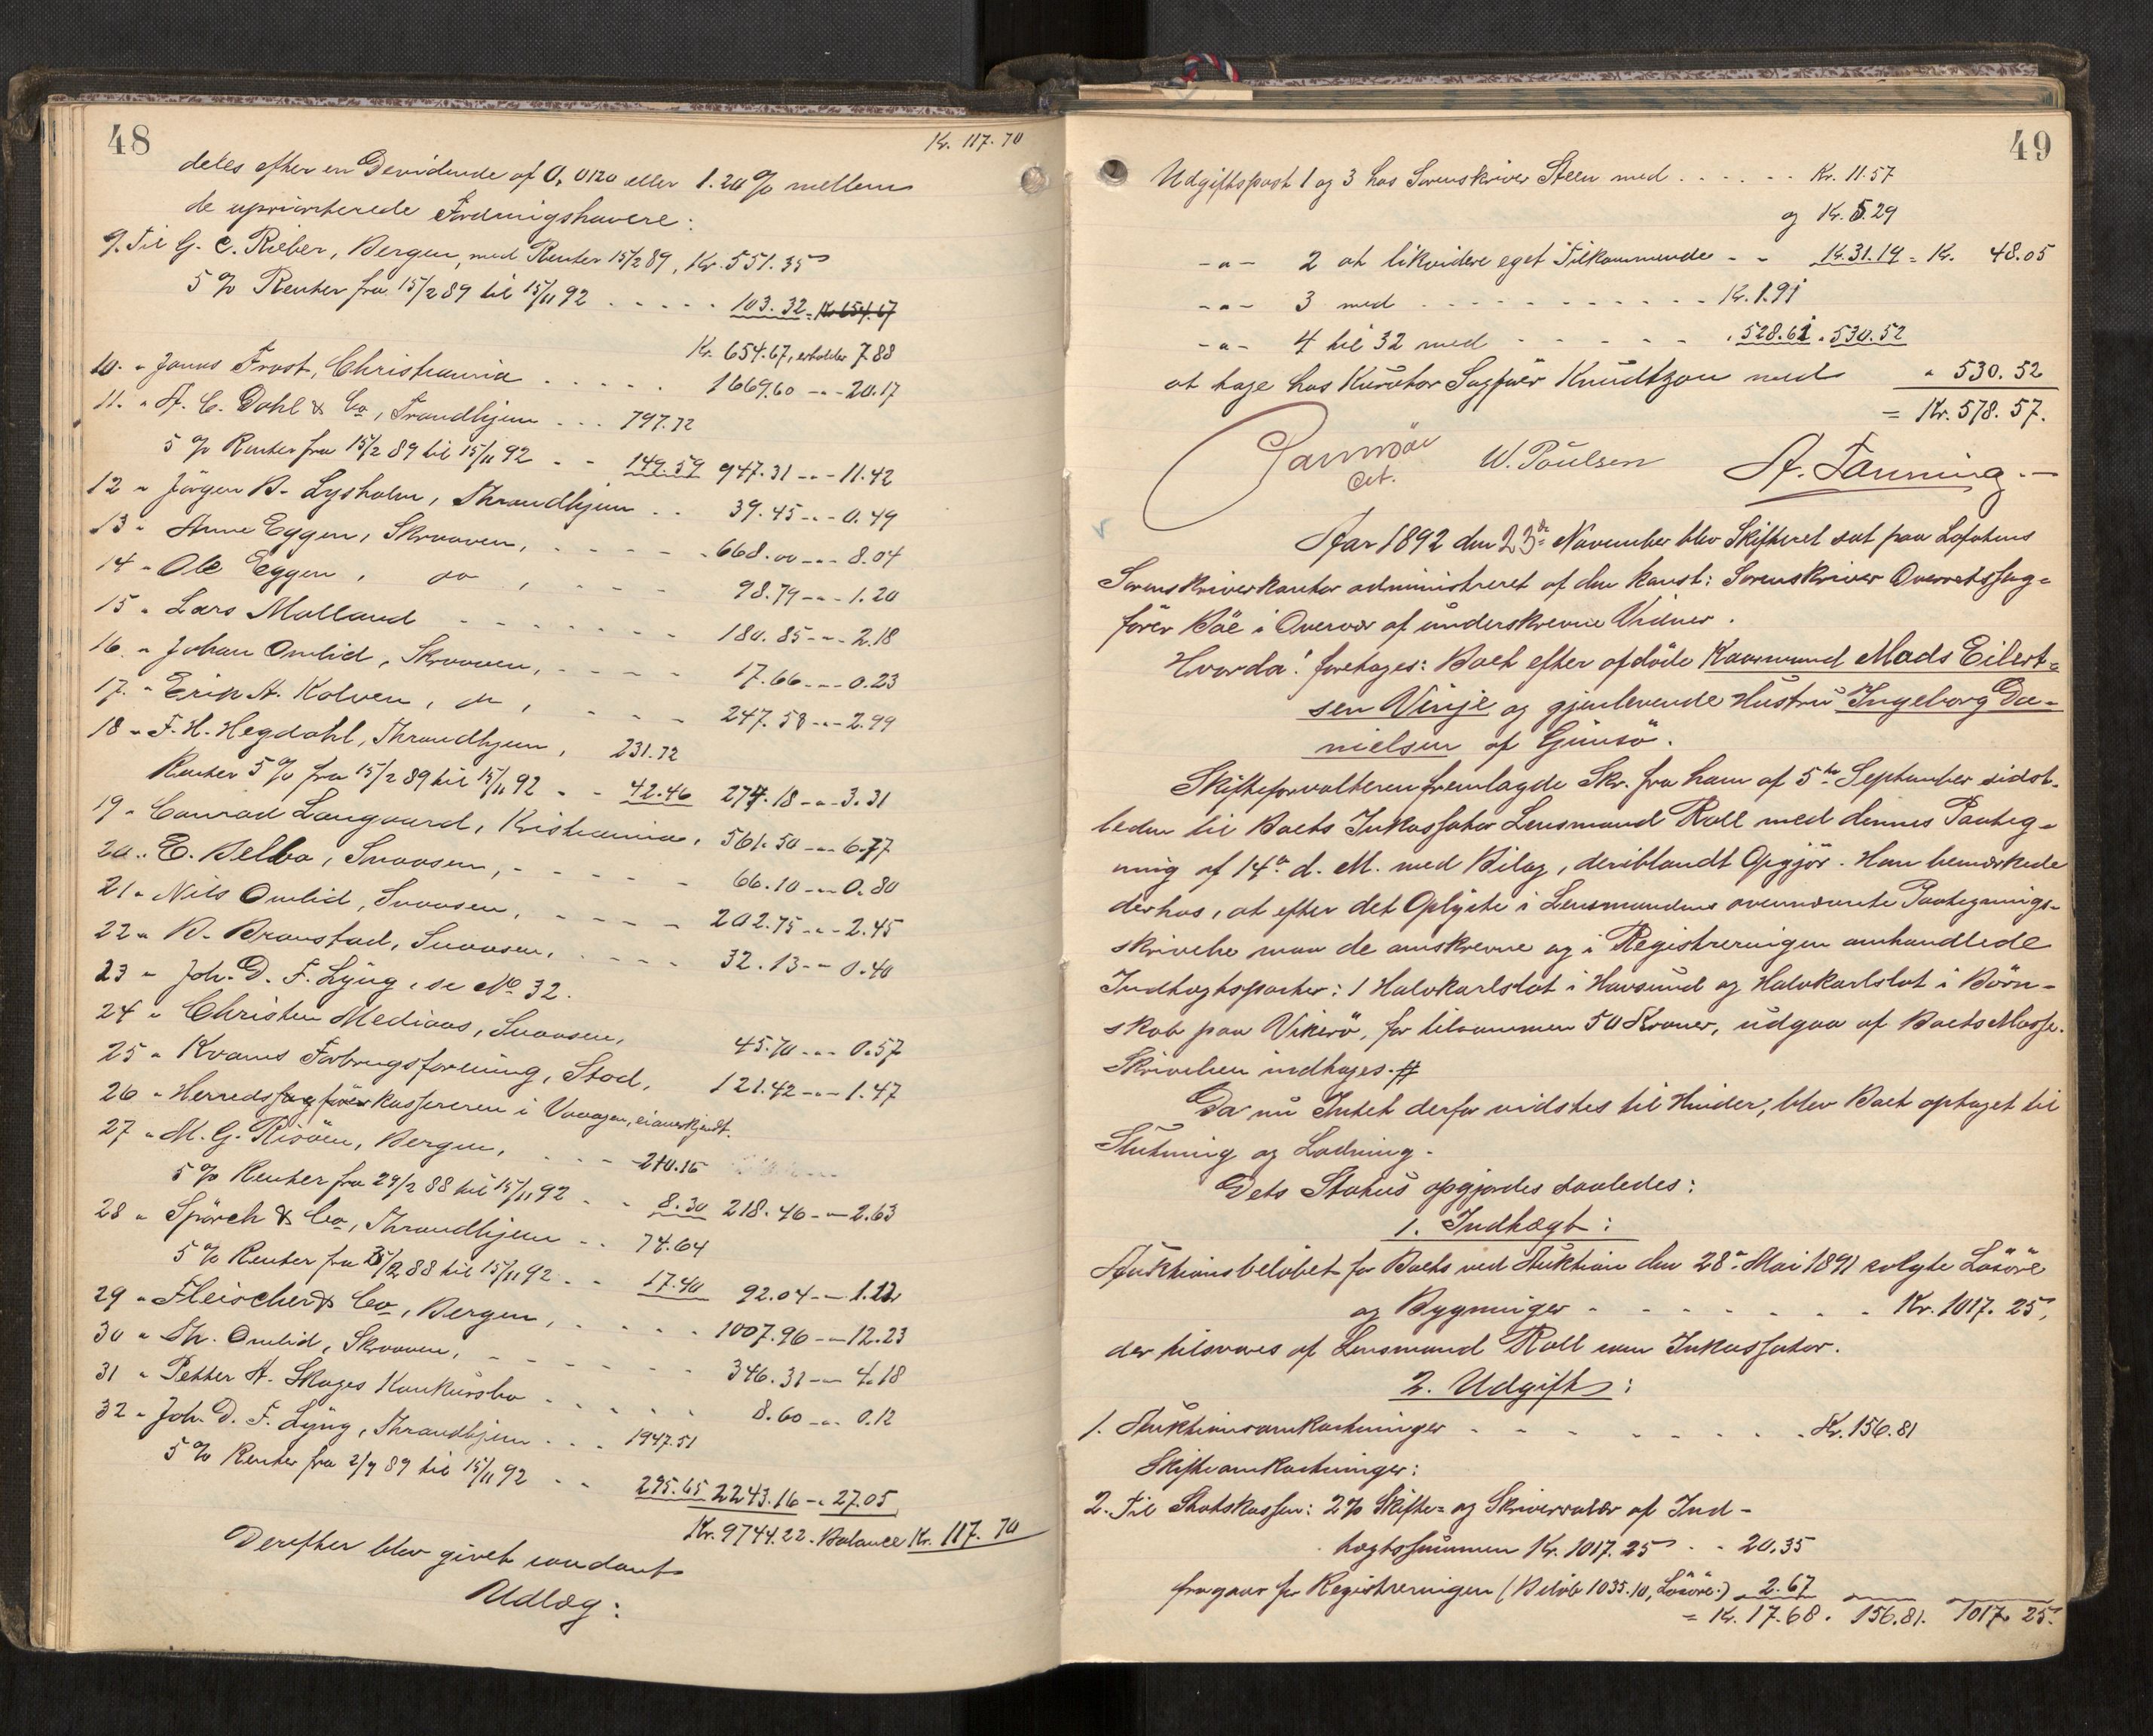 48
Kr. 117.70
deles efter en Devidende af 0,0120 eller 1.20 % mellem
de upriorterede Fordringshavere:
9. Til G. C. Rieber, Bergen, med Renter 15/2 89, Kr. 551.35
5 % Renter fra 15/2 89 til 15/11 92 . . . . . 103.32 = Kr 654.67
Kr. 654.67, erholder 7.88
10. " Jonas Frost, Christiania . . . . . 1669.60 -"- 20.17
11. " A. C. Dahl & Co, Trondhjem . . . 797.72
5 % Renter fra 15/2 89 til 15/11 92 - - 149.59 947.31 -"- 11.42
12 " Jörgen B. Lysholm, Throndhjem . . 39.45 -"- 0.49
13 " Anne Eggen, Skrooven, - - - - . 668.00 -"- 8.04
14 " Ole Eggen, do , - - - 98.79 -"- 1.20
15 " Lars Molland - - - - - - - 180.85 -"- 2.18
16. " Johan Omlid, Skrooven, - - - - 17.66 -"- 0.23
17. " Erik A. Kolven, do , - - - 247.58 -"- 2.99
18 " F. H. Hegdahl, Throndhjem, 231.72
Renter 5 % fra 15/2 89 til 15/11 92 - - 42.46 274.18 -"- 3.31
19 " Conrad Langaard, Kristiania, 561.50 -"- 6.77
20 " E. Belbo, Snoosen, - - - - - 66.10 -"- 0.80
21 " Nils Omlid, Snoosen, - - - - 202.75 -"- 2.45
22 " B. Bronstad, Snoosen, . - - - - 32.13 -"- 0.40
23 " Joh. D. F. Lÿng, se No 32.
24 " Christen Mediaas, Snoosen, 45.70 -"- 0.57
25 " Kvams Forbrugsforening, Stod, 121.42 -"- 1.47
26 " Herredskassereren i Vaagan, ei anerkjendt.
27 " M. G. Risöen, Bergen, . - - 210.16
5 % Renter fra 29/2 88 til 15/11 92 - - 8.30 218.46 -"- 2.63
28 " Spörck & Co, Throndhjem - . 74.64
5 % Renter fra 15/2 88 til 15/11 92 - - 17.40 92.04 -"- 1.12
29 " Fleischer & Co, Bergen, . - . . . 1007.96 -"- 12.23
30 " Th. Omlid, Skrooven, - - - - - - 346.31 -"- 4.18
31 " Petter A. Skages Konkursbo - - . . . 8.60 -"- 0.12
32 " Joh. D. F. Lÿng, Throndhjem . . . 1947.51
5 % Renter fra 2/9 89 til 15/11 92 - - 295.65 2243.16 -"- 27.05
Kr. 9744.22. Balance Kr. 117.70
Derefter blev givet saadant
Udlæg:
49
Udgiftspost 1 og 3 hos Sorenskriver Steen med . . . . . - Kr. 11.57
og Kr. 5.29
-"- 2 at likvidere eget Tilkommende - - Kr. 31.19 = Kr. 48.05
-"- 3 med . - - - - - - - - - - Kr. 1.91
-"- 4 til 32 med - - - - - - . 528.61 . 530.52
at tage hos Kurator Sagfører Knudtzon med " 530.52
= Kr. 578.57.
cst. W. Poulsen A. Fanning.
Aar 1892 den 23de November blev Skifteret sat paa Lofotens
Sorenskriverkontor administreret af den konst: Sorenskriver Overretssag-
förer Böe i Overvær af underskrevne Vidner.
Hvorda! foretages: Boet efter afdöde Kaarmand Mads Eilert-
sen Vinje og gjenlevende Hustru Ingeborg Da-
nielsen af Gimsö.
Skifteforvalteren fremlagde Skr. fra ham af 5te September sidst-
leden til Boets Inkassator Lensmand Roll med dennes Paateg-
ning af 14de d. M. med Bilag, deriblandt Opgjör. Han bemærkede
derhos, at efter det Oplyste i Lensmandens ovennævnte Paategnings-
skrivelse maa de omskrevne og i Registreringen omhandlede
Indtægtsposter: 1 Halvkarlslot i Havsund og Halvkarlslot i Börn-
skab paa Vikerö, for tilsammen 50 Kroner, udgaa af Boets Masse.
Skrivelsen indtages.
Da nu Intet derfor vidstes til Hinder, blev Boet optaget til
Slutning og Lodning.
Dets Status opgjordes saaledes:
1. Indtægt:
Auktionsbelöbet for Boets ved Auktion den 28de Mai 1891 solgte Lösöre
og Bygninger - - - - - - - Kr. 1017.25,
der tilsvares af Lensmand Roll som Inkassator.
2. Udgift:
1. Auktionsomkostninger - - - - - - - . . Kr. 156.81
Skifteomkostninger:
2. Til Statskassen: 2 % Skifte- og Skriversalær af Ind-
tægtssummen Kr. 1017.25 - - 20.35
fragaar for Registreringen (Belöb 1035.10, Lösöre.) 2.67
= Kr. 17.68. 156.81. 1017.25.